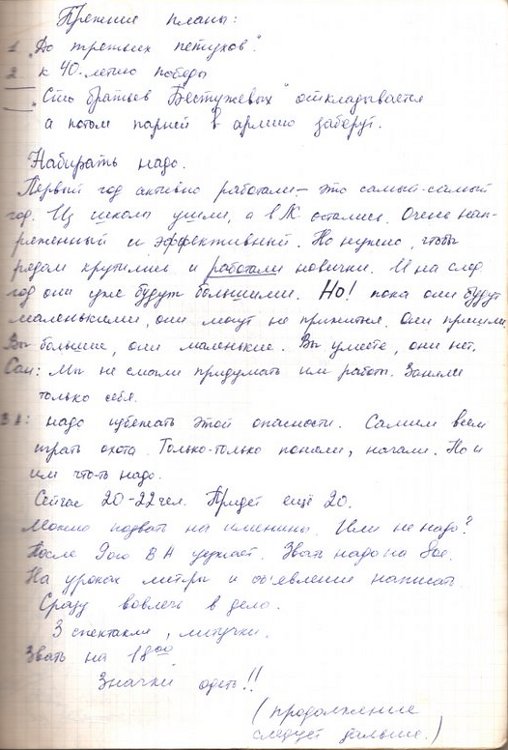 Прежние планы:
1 „До третьих петухов".
2 к 40-летию победы
„Сто братьев Бестужевых" откладывается
а потом парней в армию заберут.
Набирать надо.
Первый год активно работали – это самый-самый
год. Из школы ушли, а в К остались. Очень нап-
ряженный и эффективный. Но нужно, чтобы
рядом крутились и работали новички. И на след.
год они уже будут большими. Но! пока они будут
маленькими, они могут не прижиться. Они пришли.
Вы большие, они маленькие. Вы умеете, они нет.
Сам: Мы не смогли придумать им работы. Заняли
только себя.
ВА: надо избежать этой опасности. Самим всем
играть охота. Только-только поняли, начали. Но и
им что-то надо.
Сейчас 20-22 чел. Придёт ещё 20.
Можно позвать на именины. Или не надо?
После 9ого ВА уезжает. Звать надо на 8ое.
На уроках лит-ры и объявление написать.
Сразу вовлечь в дело.
3 спектакля, летучки.
Звать на 18⁰⁰.
Значки одеть!!
(продолжение
следует дальше.)